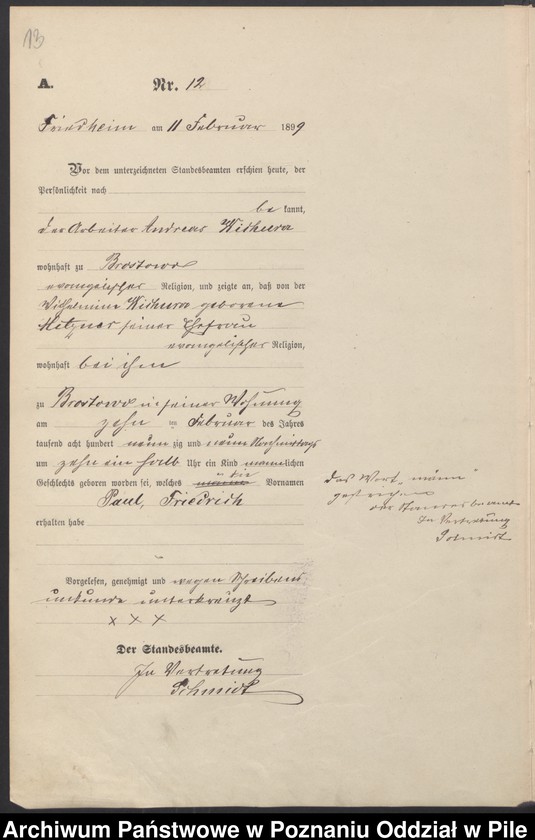 13
A.
Nr. 12
Friedheim am 11 Februar 1899
Vor dem unterzeichneten Standesbeamten erschien heute, der
Persönlichkeit nach
be kannt,
der Arbeiter Andreas Widhura
wohnhaft zu Brostowo
evangelischer Religion, und zeigte an, daß von der
Wilhelmine Widhura geborene
Metzner seiner Ehefrau
evangelischer Religion,
wohnhaft bei ihm
zu Brostowo in seiner Wohnung
am zehn ten Februar des Jahres
tausend acht hundert neun zig und neun Vormittags
um zehn ein halb Uhr ein Kind männlichen
Geschlechts geboren worden sei, welches die Vornamen
Paul, Friedrich
erhalten habe
Vorgelesen, genehmigt und wegen Schreibens
unkunde unterkreuzt
x x x
Der Standesbeamte.
In Vertretung
Schmidt
Das Wort "
gestrichen
der Standesbeamte
In Vertretung
Schmidt
Archiwum Państwowe w Poznaniu Oddział w Pile